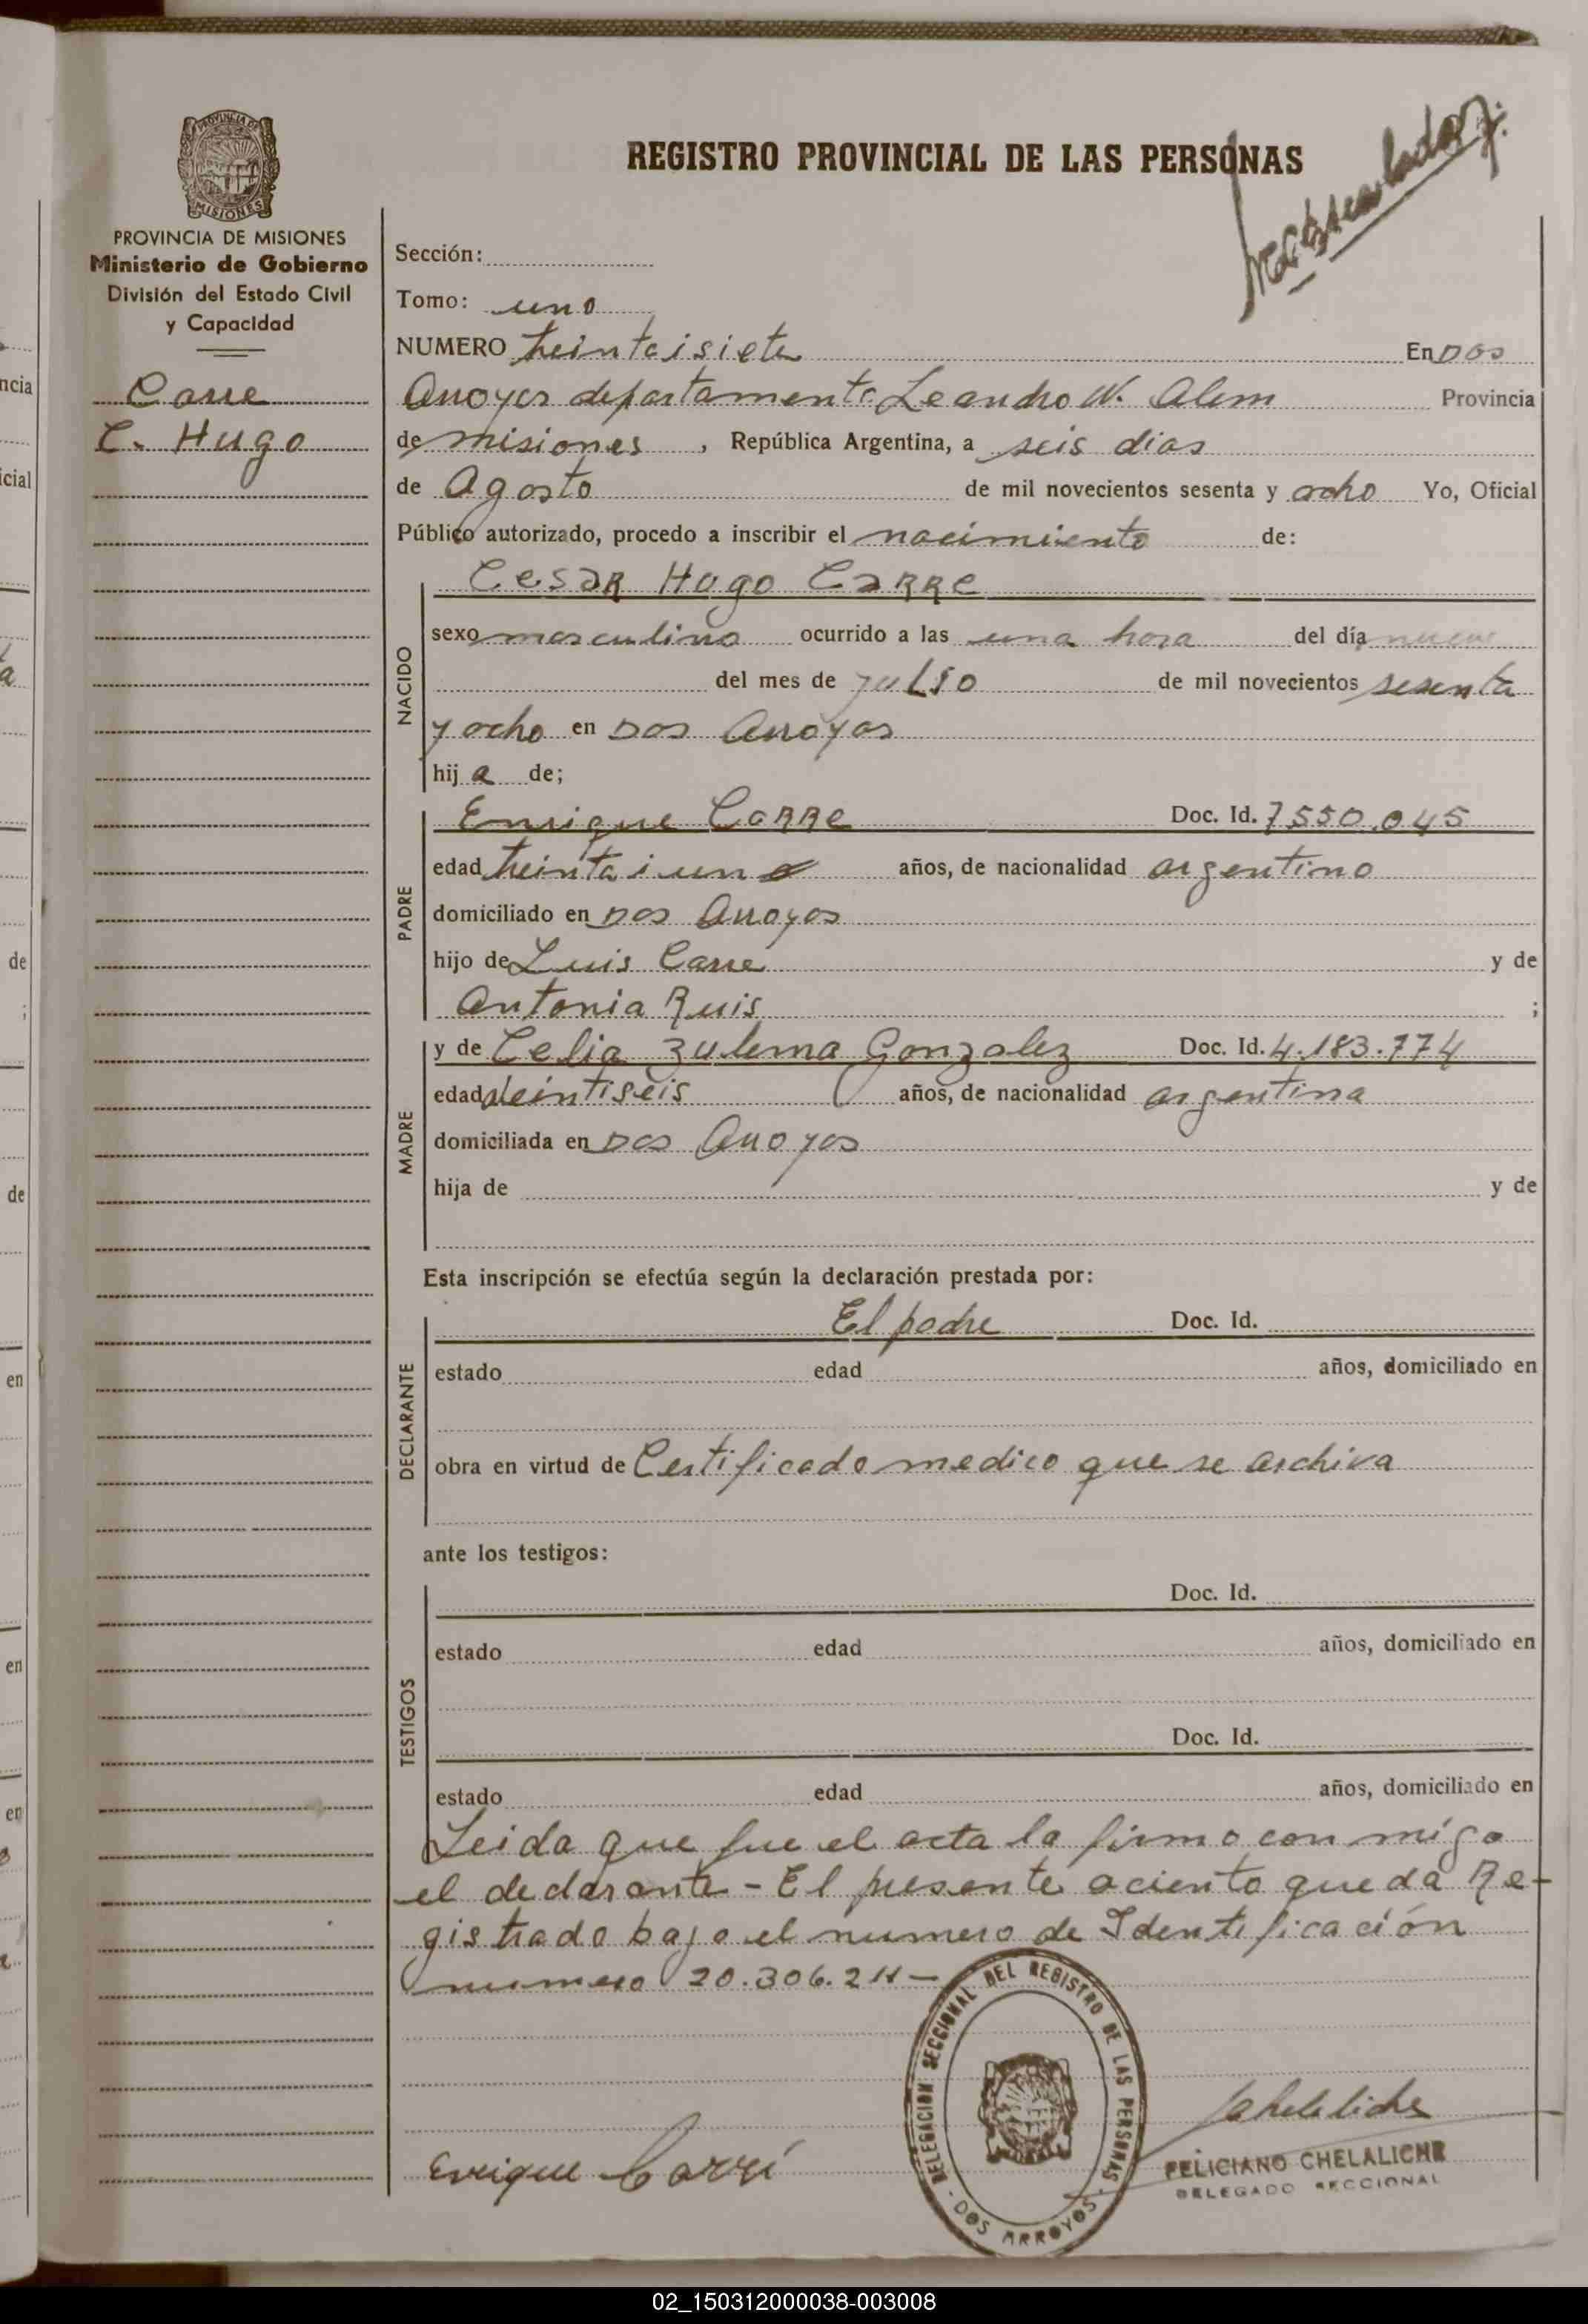 REGISTRO PROVINCIAL DE LAS PERSONAS
PROVINCIA DE
MISIONES
PROVINCIA DE MISIONES
Ministerio de Gobierno
División del Estado Civil
y Capacidad
Carre
C. Hugo
Sección:
Tomo: uno
NUMERO treintaisiete En Dos
Arroyos departamento Leandro N. Alem Provincia
de misiones, República Argentina, a seis dias
de Agosto de mil novecientos sesenta y ocho Yo, Oficial
Público autorizado, procedo a inscribir el nacimiento de:
NACIDO
Cesar Hugo Carre
sexo masculino ocurrido a las una hora del día nueve
del mes de Julio de mil novecientos sesenta
y ocho en Dos Arroyos
hij a de;
PADRE
Enrique Carre Doc. Id. 7550.045
edad treinta i uno años, de nacionalidad argentino
domiciliado en Dos Arroyos
hijo de Luis Carre y de
Antonia Ruis ;
MADRE
y de Celia Zulema Gonzalez Doc. Id. 4.183.774
edad veintiseis años, de nacionalidad argentina
domiciliada en Dos Arroyos
hija de y de
Esta inscripción se efectúa según la declaración prestada por:
DECLARANTE
El padre Doc. Id.
estado edad años, domiciliado en
obra en virtud de Certificado medico que se archiva
ante los testigos:
TESTIGOS
Doc. Id.
estado edad años, domiciliado en
Doc. Id.
estado edad años, domiciliado en
Leida que fue el acta la firma con migo
el declarante - El presente aciento queda Re-
gistrado bajo el numero de Identificación
numero 20.306.211 -
DELEGACION SECCIONAL DEL REGISTRO DE LAS PERSONAS - DOS ARROYOS -
Enrique Carré
FELICIANO CHELALICHE
DELEGADO SECCIONAL
02_150312000038-003008